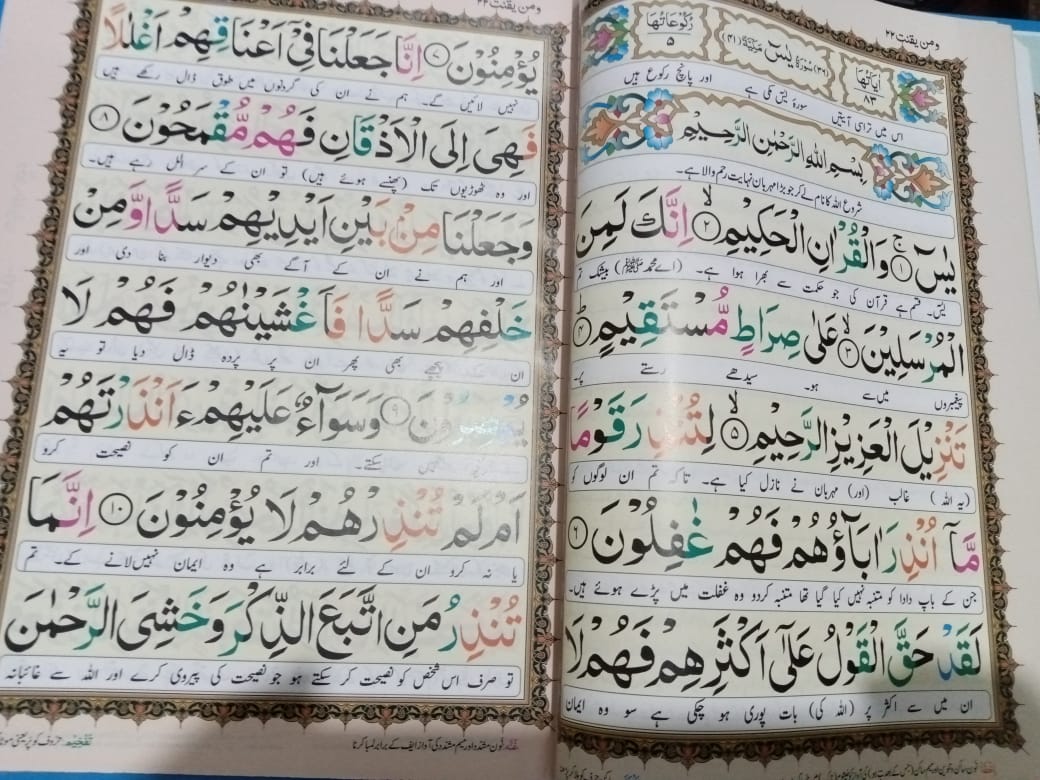 ومن یقنت ۲۲
اٰیَاتُهَا ۸۳
(۳۶) سُوْرَةُ یٰسٓ مَكِّیَّةٌ (۴۱)
رُكُوْعَاتُهَا ۵
اس میں تراسی آیتیں سورۂ یٰس مکی ہے اور پانچ رکوع ہیں
بِسْمِ اللّٰهِ الرَّحْمٰنِ الرَّحِیْمِ
شروع اللہ کا نام لے کر جو بڑا مہربان نہایت رحم والا ہے۔
یٰسٓ ۚ﴿۱﴾ وَالْقُرْاٰنِ الْحَكِیْمِ ۙ﴿۲﴾ اِنَّكَ لَمِنَ
یٰس۔ قسم ہے قرآن کی جو حکمت سے بھرا ہوا ہے۔ (اے محمد ﷺ) بیشک تم
الْمُرْسَلِیْنَ ۙ﴿۳﴾ عَلٰى صِرَاطٍ مُّسْتَقِیْمٍ ؕ﴿۴﴾
پیغمبروں میں سے ہو۔ سیدھے رستے پر۔
تَنْزِیْلَ الْعَزِیْزِ الرَّحِیْمِ ۙ﴿۵﴾ لِتُنْذِرَ قَوْمًا
(یہ اللہ) غالب (اور) مہربان نے نازل کیا ہے۔ تاکہ تم ان لوگوں کو
مَّاۤ اُنْذِرَ اٰبَآؤُهُمْ فَهُمْ غٰفِلُوْنَ ﴿۶﴾
جن کے باپ دادا کو متنبہ نہیں کیا گیا تھا متنبہ کردو وہ غفلت میں پڑے ہوئے ہیں۔
لَقَدْ حَقَّ الْقَوْلُ عَلٰۤى اَكْثَرِهِمْ فَهُمْ لَا
ان میں سے اکثر پر (اللہ کی) بات پوری ہو چکی ہے سو وہ ایمان
ومن یقنت ۲۲
یُؤْمِنُوْنَ ﴿۷﴾ اِنَّا جَعَلْنَا فِیْۤ اَعْنَاقِهِمْ اَغْلٰلًا
نہیں لائیں گے۔ ہم نے ان کی گردنوں میں طوق ڈال رکھے ہیں
فَهِیَ اِلَى الْاَذْقَانِ فَهُمْ مُّقْمَحُوْنَ ﴿۸﴾
اور وہ ٹھوڑیوں تک (پھنسے ہوئے ہیں) تو ان کے سر اُلل رہے ہیں۔
وَجَعَلْنَا مِنْۢ بَیْنِ اَیْدِیْهِمْ سَدًّا وَّمِنْ
اور ہم نے ان کے آگے بھی دیوار بنا دی اور
خَلْفِهِمْ سَدًّا فَاَغْشَیْنٰهُمْ فَهُمْ لَا
ان کے پیچھے بھی پھر ان پر پردہ ڈال دیا تو یہ
یُبْصِرُوْنَ ﴿۹﴾ وَسَوَآءٌ عَلَیْهِمْ ءَاَنْذَرْتَهُمْ
نہیں سکتے۔ اور تم ان کو نصیحت کرو
اَمْ لَمْ تُنْذِرْهُمْ لَا یُؤْمِنُوْنَ ﴿۱۰﴾ اِنَّمَا
یا نہ کرو ان کے لئے برابر ہے وہ ایمان نہیں لانے کے۔ تم
تُنْذِرُ مَنِ اتَّبَعَ الذِّكْرَ وَخَشِیَ الرَّحْمٰنَ
تو صرف اس شخص کو نصیحت کر سکتے ہو جو نصیحت کی پیروی کرے اور اللہ سے غائبانہ
غُنّہ: نون مشدد اور میم مشدد کی آواز ایف کے برابر لمبا کرنا
تفخیم: حروف کو پُر یعنی موٹا